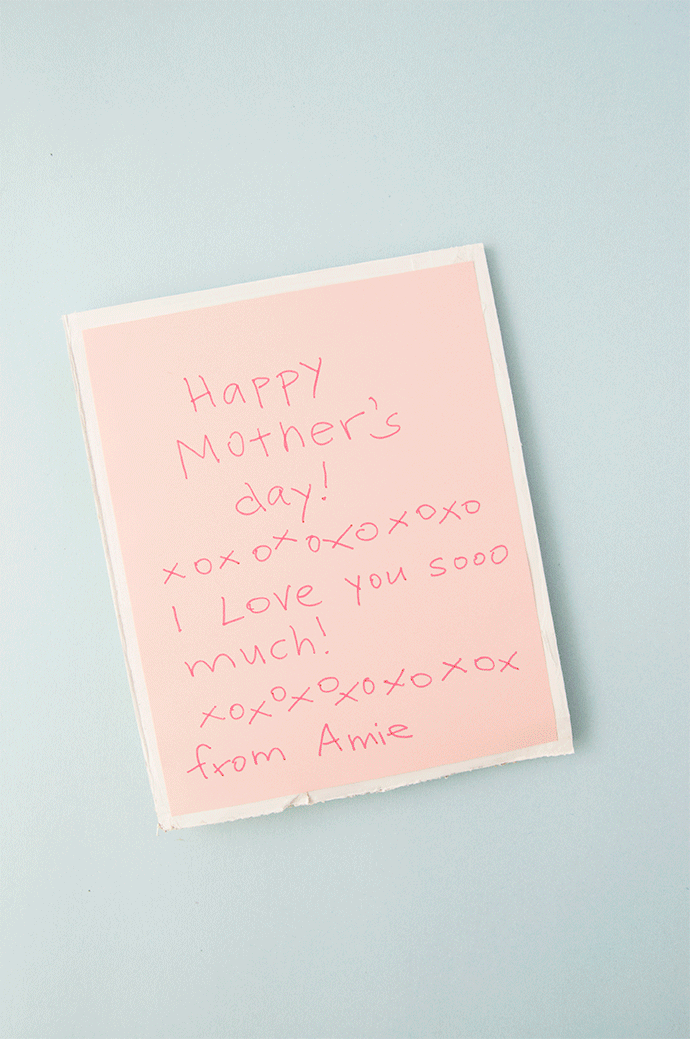 Happy
Mother's
day!
xoxoxoxoxoxo
I Love you sooo
much!
xoxoxoxoxoxox
from Amie